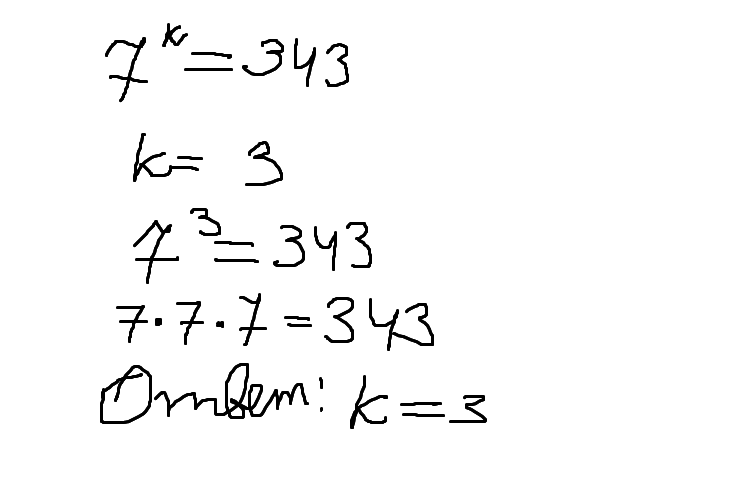 7^k=343
k= 3
7^3=343
7·7·7=343
Ответ: k=3